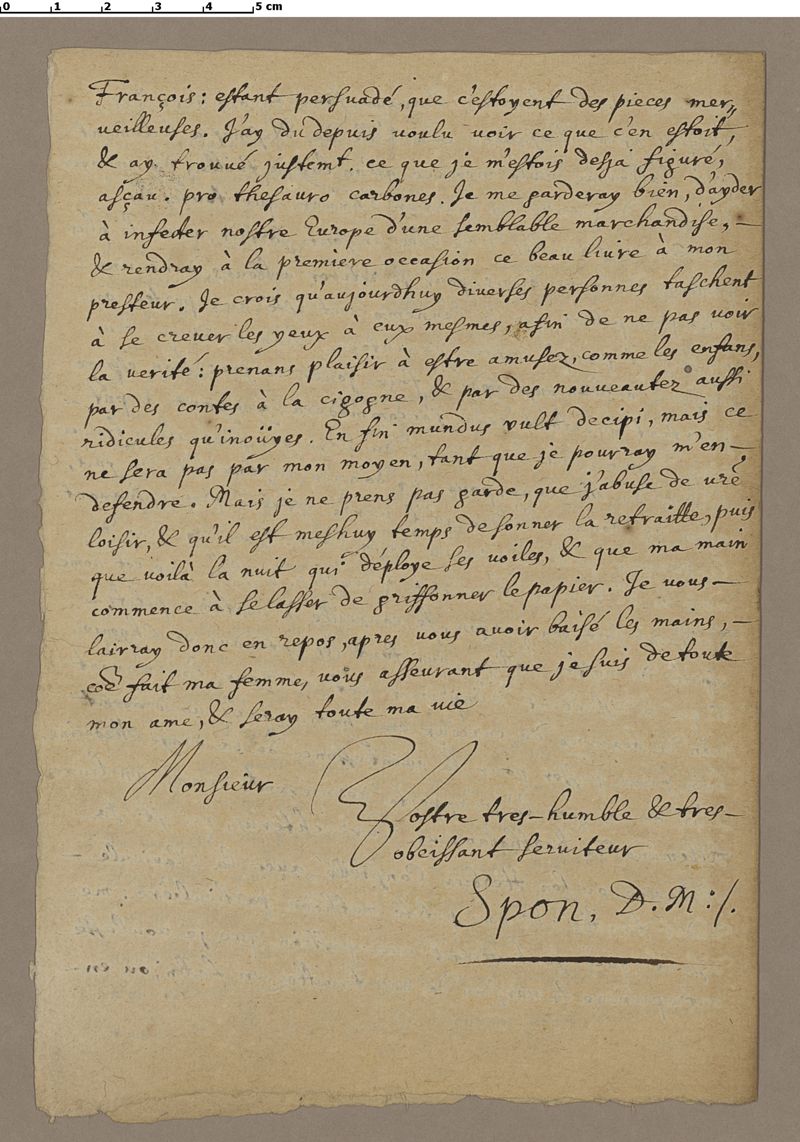 0 1 2 3 4 5 cm
François: estant persuadé, que c'estoyent des pieces mer„
veilleuses. J'ay du depuis voulu voir ce que c'en estoit,
& ay trouvé justemt. ce que je m'estois desja figuré,
asçav. pro thesauro carbones. Je me garderay bien, d'ayder
à infecter nostre Europe d'une semblable marchandise, —
& rendray à la premiere occasion ce beau livre à mon
presteur. Je crois qu'aujourdhuy diverses personnes taschent
à se crever les yeux à eux mesmes, afin de ne pas voir
la verité: prenans plaisir à estre amusez, comme les enfans,
par des contes à la cigogne, & par des nouveautez aussi
ridicules qu'inoüyes. En fin mundus vult decipi, mais ce
ne sera pas par mon moyen, tant que je pourray m'en —
defendre. Mais je ne prens pas garde, que j'abuse de vr̃e
loisir, & qu'il est meshuy temps de sonner la retraitte, puis
que voilà la nuit qui déploye ses voiles, & que ma main
commence à se lasser de griffonner le papier. Je vous —
lairray donc en repos, apres vous avoir baisé les mains, —
cõe fait ma femme, vous asseurant que je suis de toute
mon ame, & seray toute ma vie
Monsieur
Vostre tres-humble & tres-
obeissant serviteur
Spon, D. M:/.